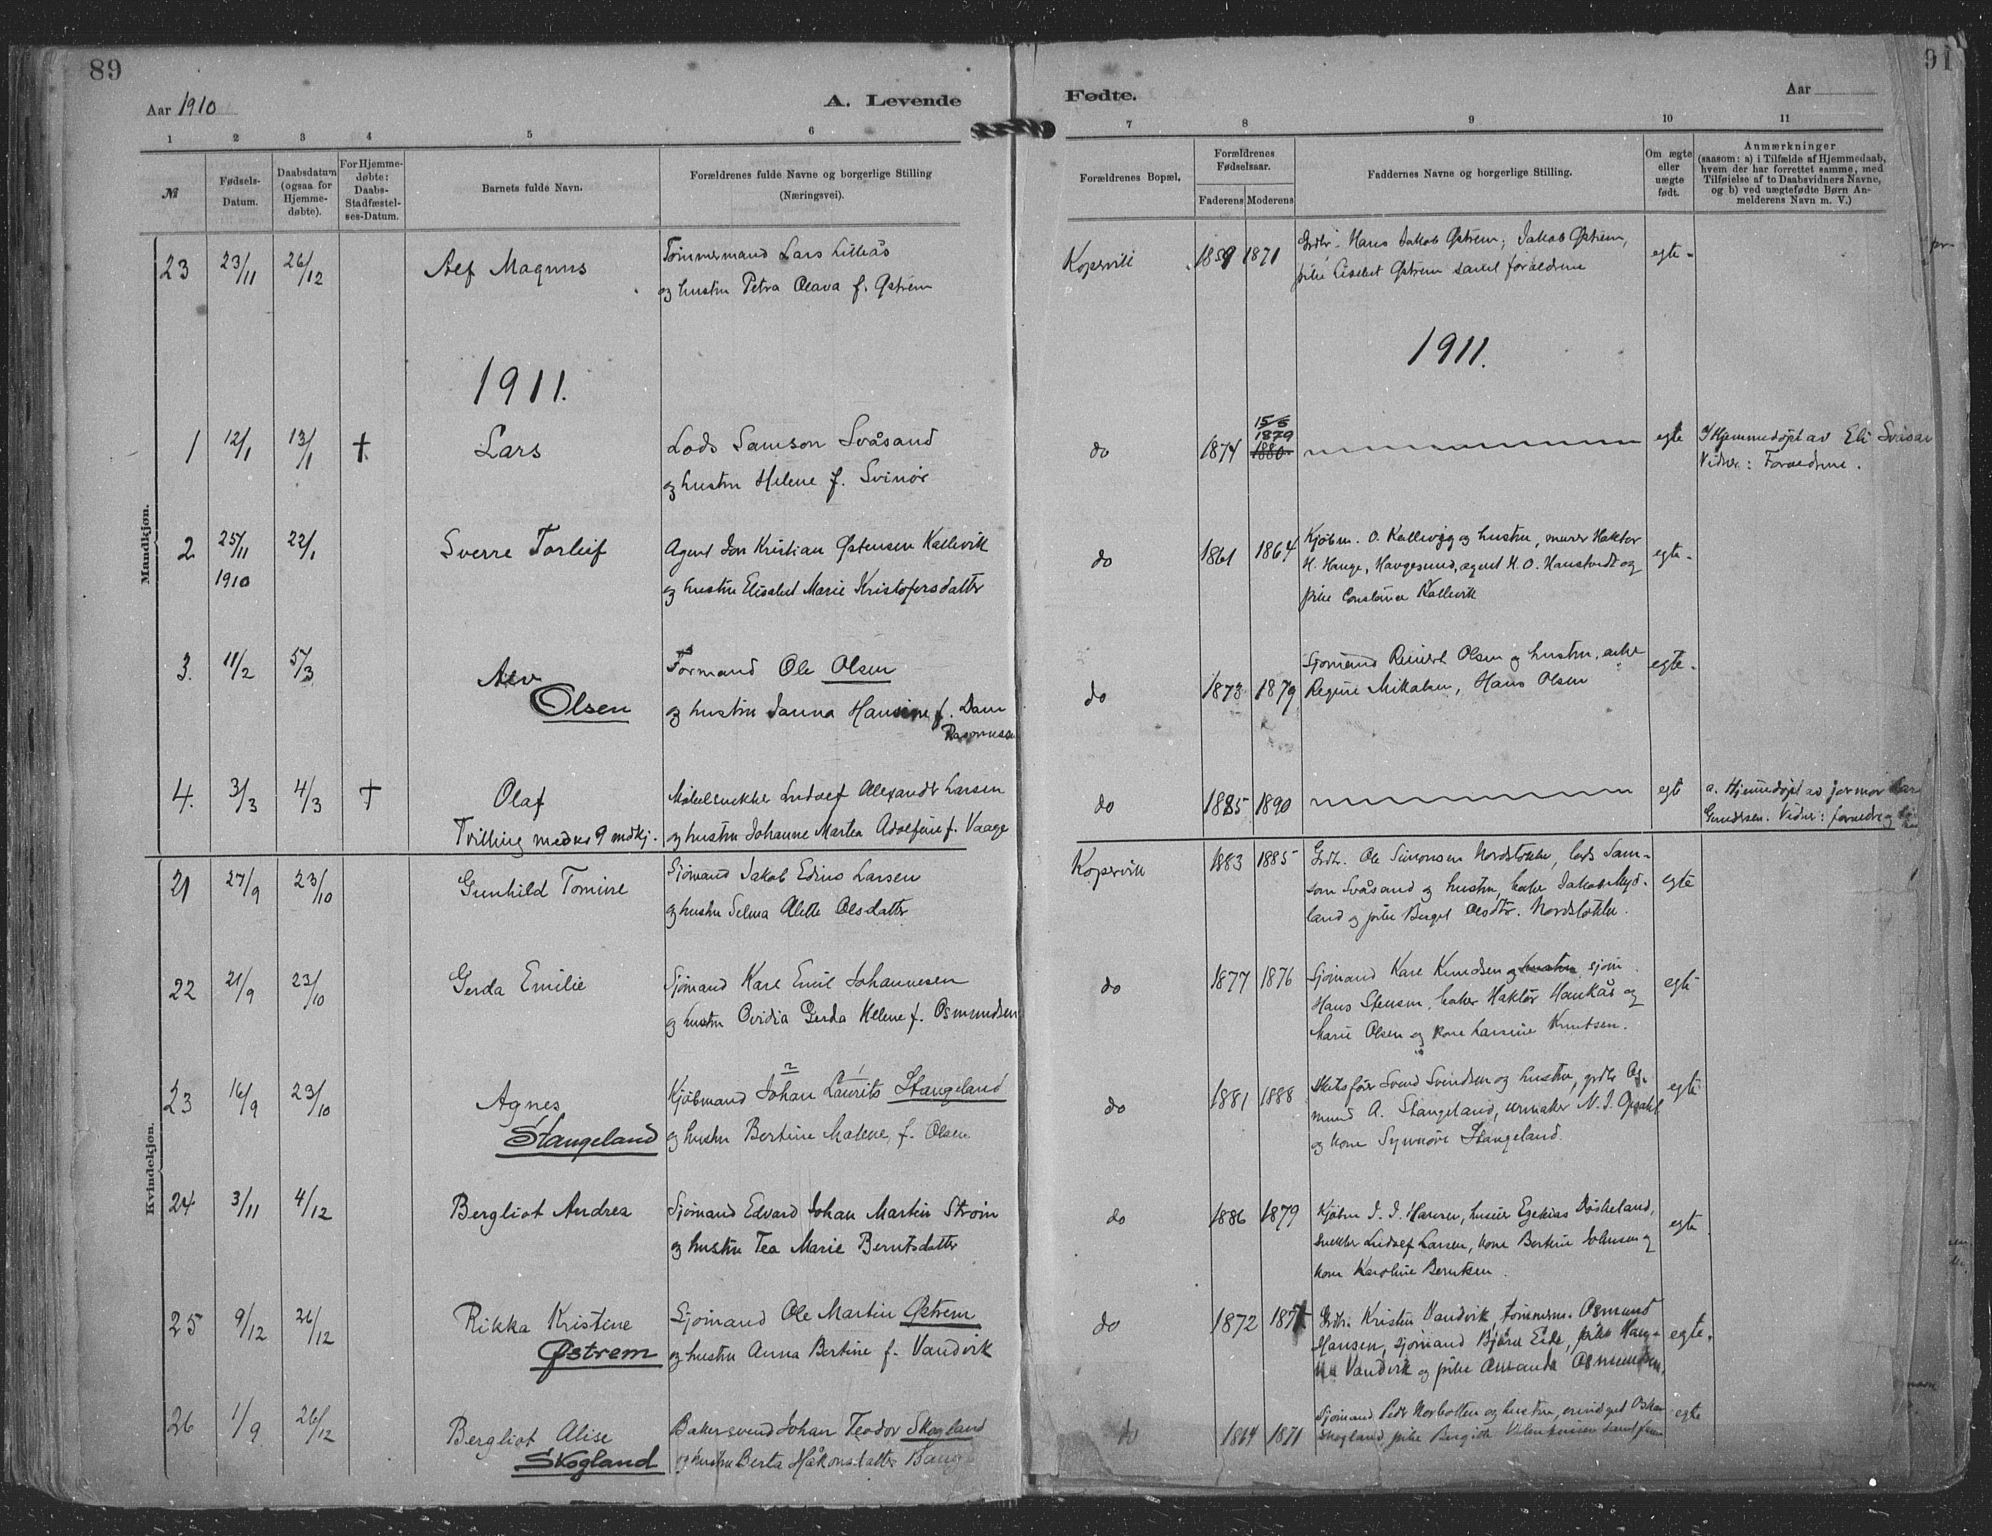 89
91
Aar 1910
A. Levende
Fødte.
Aar
1 2 3 4 5 6 7 8 9 10 11
№
Fødsels-
Datum.
Daabsdatum
(ogsaa for
Hjemme-
døbte).
For Hjemme-
døbte:
Daabs-
Stadfæstel-
ses-Datum.
Barnets fulde Navn.
Forældrenes fulde Navne og borgerlige Stilling
(Næringsvei).
Forældrenes Bopæl.
Forældrenes
Fødselsaar.
Faderens Moderens
Faddernes Navne og borgerlige Stilling.
Om ægte
eller
uægte
født.
Anmærkninger
(saasom: a) i Tilfælde af Hjemmedaab,
hvem der har forrettet samme, med
Tilføielse af to Daabsvidners Navne,
og b) ved uægtefødte Børn An-
melderens Navn m. V.)
Mandkjøn.
23 23/11 26/12 Alf Magnus
Tømmermand Lars Lilleås
og hustru Petra Olava f. Østrem
Kopervik 1859 1871
Grdbr. Hans Jakob Østrem; Jakob Østrem,
pike Elisabet Østrem samt forældrene
egte
1911.
1911.
1 12/1 13/1 † Lars
Lods Samson Svåsand
og hustru Helene f. Svinør
do 1874 15/5 1879 1880
egte
Hjemmedøpt av Eli
Vidner: Forældrene.
2 25/11 1910 22/1 Sverre Torleif
Agent Jon Kristian Østensen Kallevik
og hustru Elisabet Marie Kristofersdatter
do 1861 1864
Kjøbm. O. Kallevigg og hustru, murer Haktor
H. Hauge, Haugesund, agent H. O. Haustvedt og
pike Constance Kallevik
egte
3. 11/2 5/3 Alv
Olsen
Formand Ole Olsen
og hustru Janna Hansine f. Dam
Rasmussen
do 1873 1879
Sjømand Reinert Olsen og hustru, enke
Regine Mikalsen, Hans Olsen
egte
4. 3/3 4/3 † Olaf
Tvilling med no 9 mdkj.
Møbelsnekker Ludolf Alexander Larsen
og hustru Johanne Martea Adolfine f. Vaage
do 1885 1890
egte
a. Hjemmedøpt av jormor
Gundersen. Vidner: forældre og
Kvindekjøn.
21 27/9 23/10 Gunhild Tomine
Sjømand Jakob Edius Larsen
og hustru Selma Alette Olsdatter
Kopervik 1883 1885
Grdbr. Ole Simonsen Nordstokke, lods Sam-
son Svåsand og hustru, baker Jakob Myd-
land og pike Berget Olsdtr. Nordstokke.
egte
22 21/9 23/10 Gerda Emilie
Sjømand Karl Emil Johannesen
og hustru Ovidia Gerda Helene f. Osmundsen
do 1877 1876
Sjømand Karl Knudsen og hustru, sjøm.
Hans Stensen, baker Haktor Haukås og
Marie Olsen og kone Larsine Knutsen.
egte
23 16/9 23/10 Agnes
Stangeland
Kjøbmand Johan Laurits Stangeland
og hustru Bertine Malene f. Olsen
do 1881 1888
Skibsfører Svend Svendsen og hustru, grdbr Og-
mund A. Stangeland, urmaker N. J. Opsahl
og kone Synnøve Stangeland.
egte
24 3/11 4/12 Bergliot Andrea
Sjømand Edvard Johan Martin Strøm
og hustru Tea Marie Berntsdatter
do 1886 1879
Kjøbm J. J. Hansen, huseier Ezekias Røskeland,
snekker Ludolf Larsen, kone Bertine Johnsen og
kone Karoline Berntsen.
egte
25 9/12 26/12 Rikka Kristine
Østrem
Sjømand Ole Martin Østrem
og hustru Anna Bertine f. Vandvik
do 1872
Grdbr. Kristen Vandvik, tømmerm. Osmund
Hansen, sjømand Bjørn Eide, pike Han-
na Vandvik og pike Amanda Osmundsen.
egte.
26 1/9 26/12 Bergliot Alise
Skogland
Bakersvend Johan Teodor Skogland
og hustru Berta Håkonsdatter
do 1864 1871
Sjømand Peder Norbotten og hustru,
Skogland, pike Bergitte samt
egte